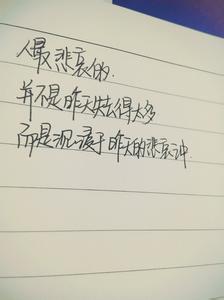 人最悲哀的.
并不是昨天失去得太多
而是沉浸于昨天的悲哀之中.